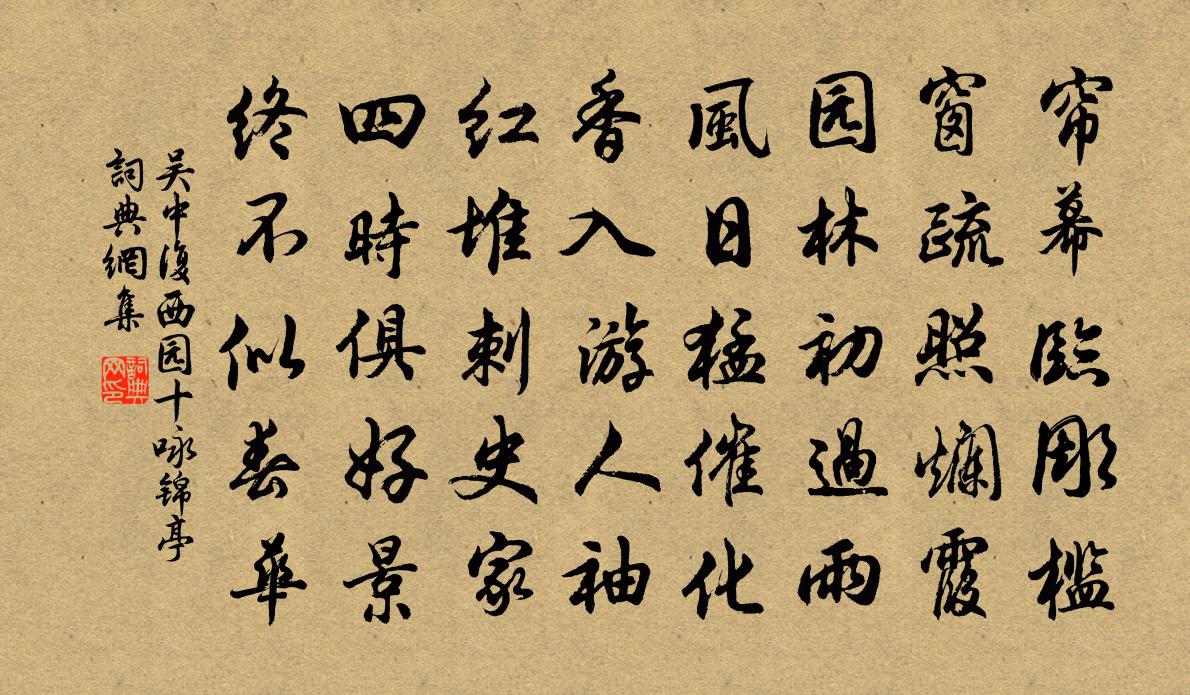 帘幕臨彫檻
窗疏照爛霞
园林初過雨
風日猛催化
香入游人袖
红堆刺史家
四時俱好景
终不似春華
吴中復西园十咏錦亭
詞典網集
詞典网印